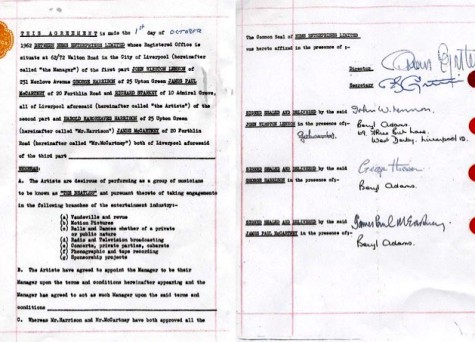 THIS AGREEMENT is made the 1st day of OCTOBER
1962 BETWEEN NEMS ENTERPRISES LIMITED whose Registered Office is
situate at 62/72 Walton Road in the City of Liverpool (hereinafter
called "the Manager") of the first part JOHN WINSTON LENNON of
251 Menlove Avenue GEORGE HARRISON of 25 Upton Green JAMES PAUL
McCARTNEY of 20 Forthlin Road and RICHARD STARKEY of 10 Admiral Grove,
all of Liverpool aforesaid (hereinafter called "the Artists") of the
second part and HAROLD HARGREAVES HARRISON of 25 Upton Green
(hereinafter called "Mr.Harrison") JAMES McCARTNEY of 20 Forthlin
Road (hereinafter called "Mr.McCartney") both of Liverpool aforesaid
of the third part
WHEREAS:
A. The Artists are desirous of performing as a group of musicians
to be known as "THE BEATLES" and pursuant thereto of taking engagements
in the following branches of the entertainment industry:-
(a) Vaudeville and revue
(b) Motion Pictures
(c) Balls and Dances whether of a private
or public nature
(d) Radio and Television broadcasting
(e) Concerts, private parties, cabarets
(f) Phonographic and tape recording
(g) Sponsorship projects
B. The Artists have agreed to appoint the Manager to be their
Manager upon the terms and conditions hereinafter appearing and the
Manager has agreed to act as such Manager upon the said terms and
conditions
C. Whereas Mr.Harrison and Mr.McCartney have both approved all the
The Common Seal of NEMS ENTERPRISES LIMITED
was hereto affixed in the presence of :-
Director
Secretary
SIGNED SEALED AND DELIVERED by the said
JOHN WINSTON LENNON in the presence of:-
John W. Lennon.
Beryl Adams.
West Derby, Liverpool 12.
SIGNED SEALED AND DELIVERED by the said
GEORGE HARRISON in the presence of:-
George Harrison
Beryl Adams.
SIGNED SEALED AND DELIVERED by the said
JAMES PAUL McCARTNEY in the presence of:-
James Paul McCartney.
Beryl Adams.